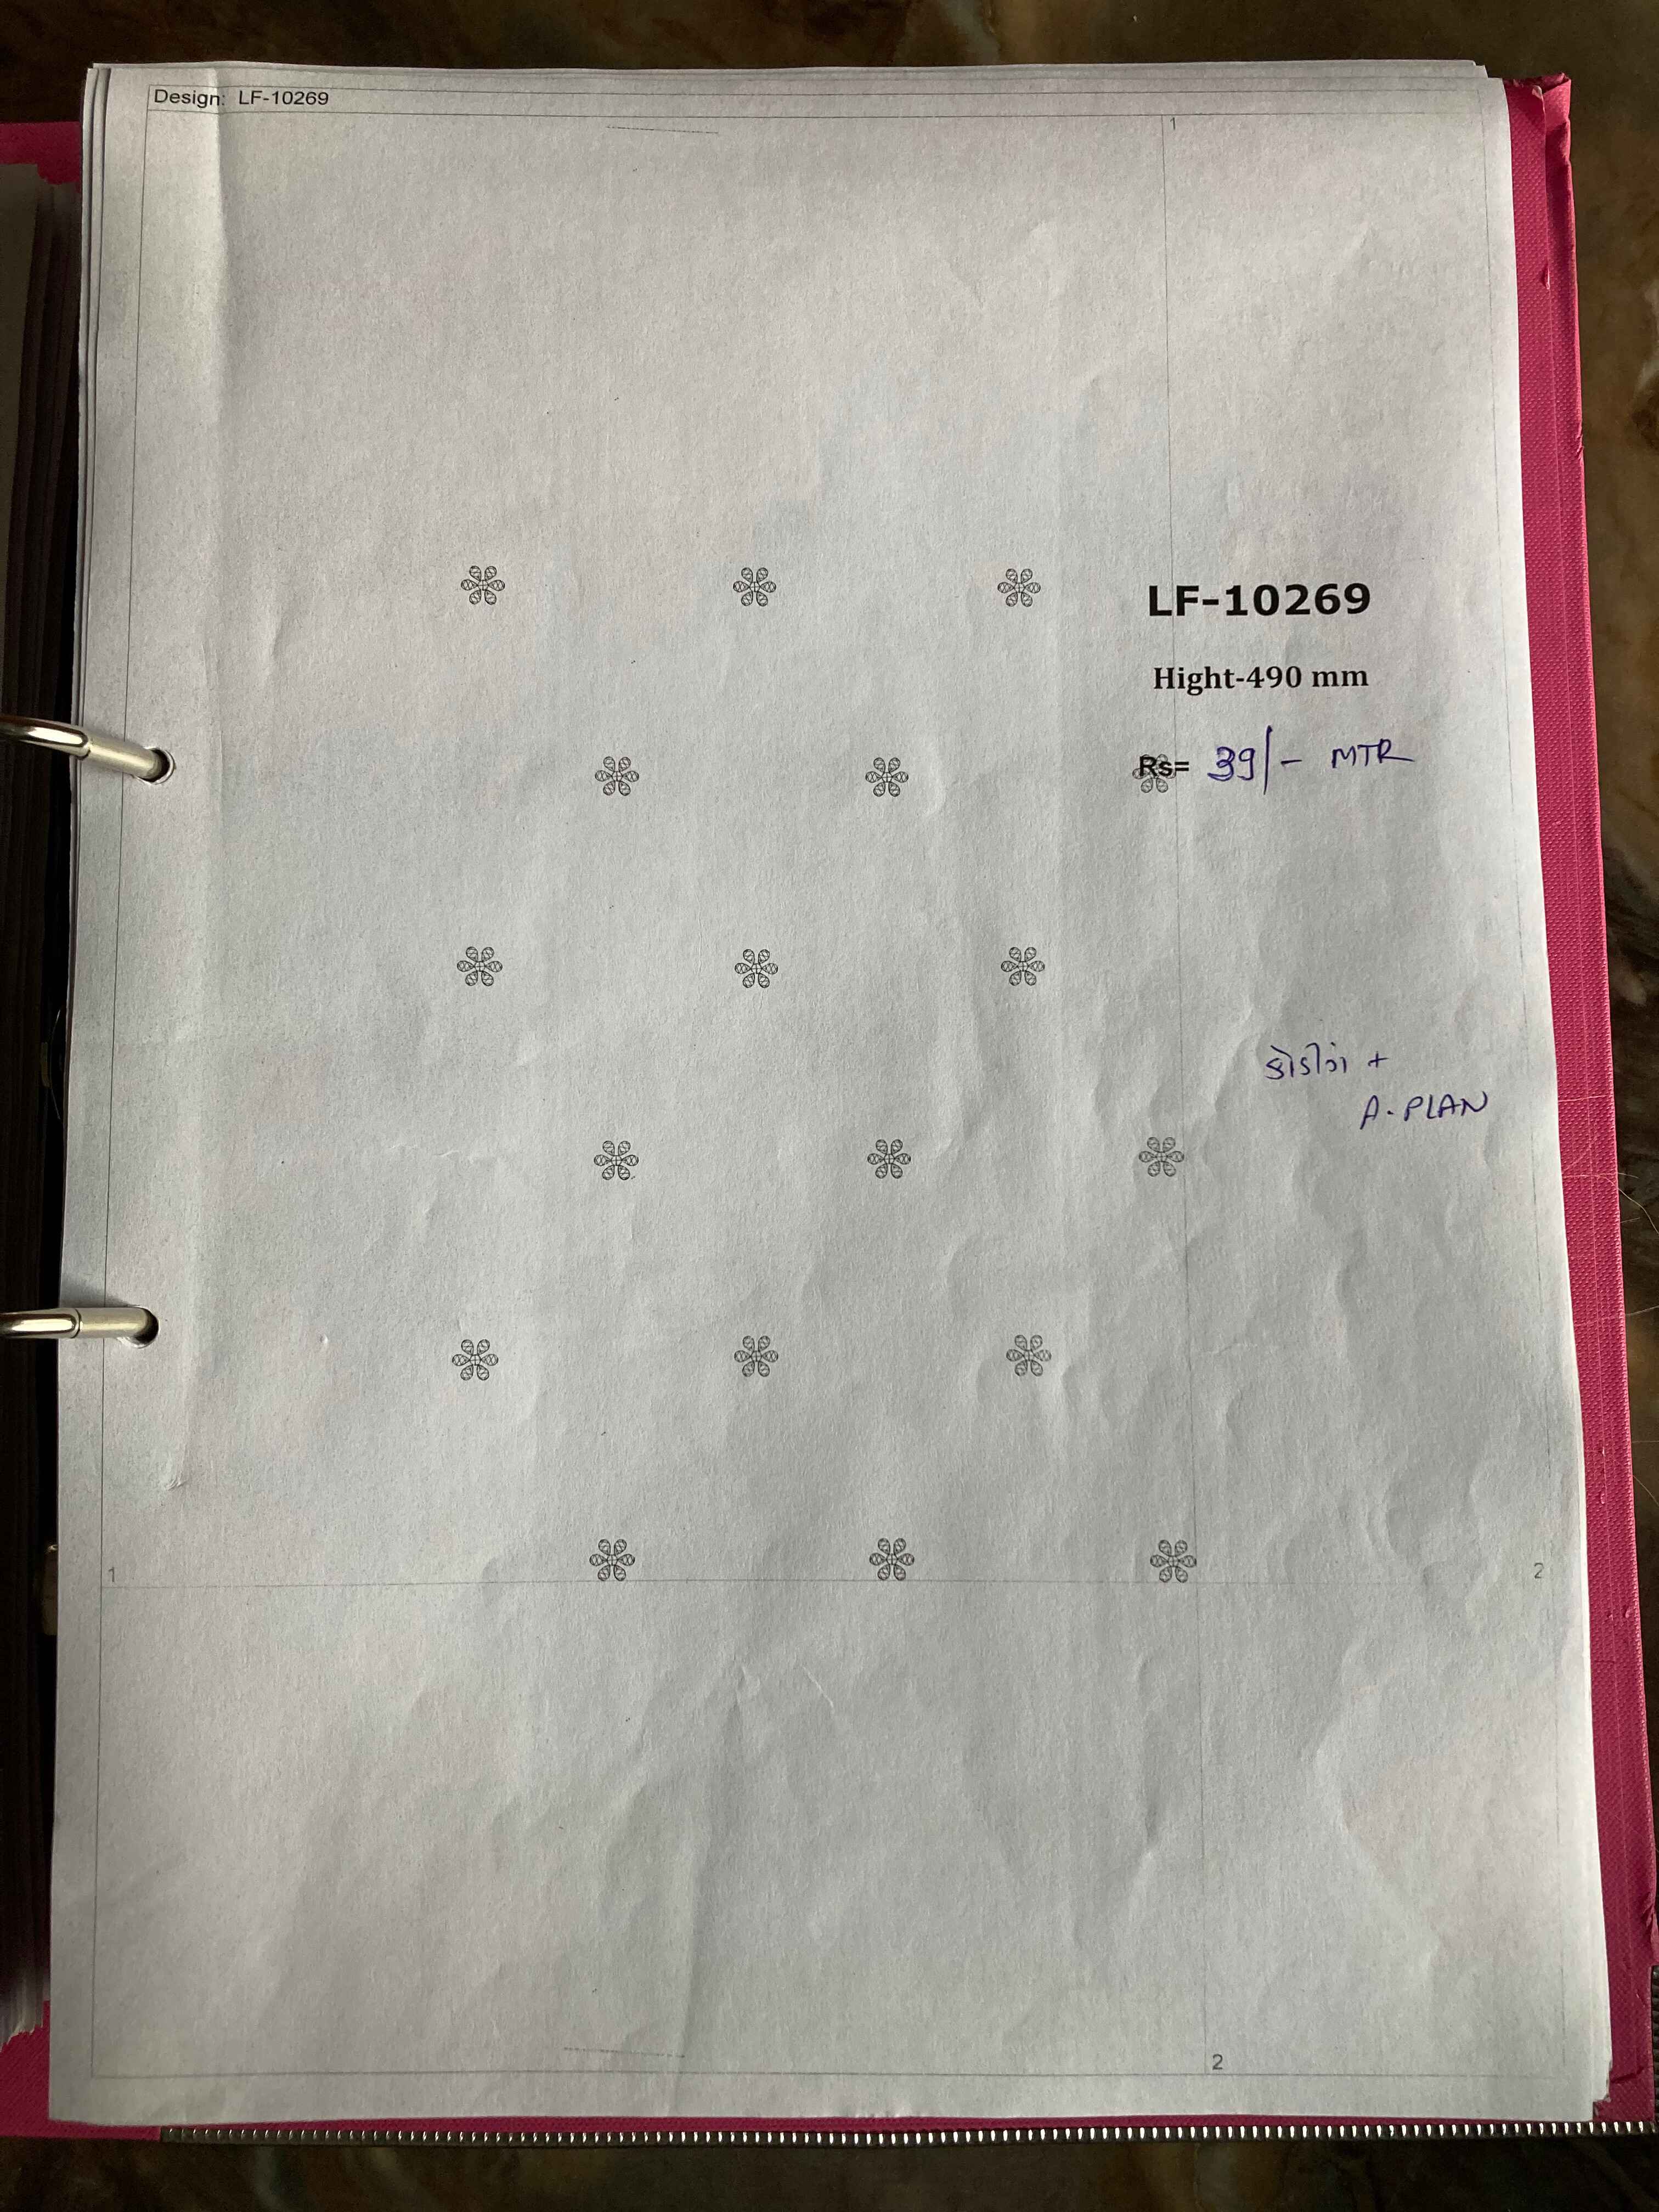 Design: LF-10269
1
LF-10269
Hight-490 mm
Rs= 39/- MTR
કોડીંગ +
A-PLAN
1
2
2